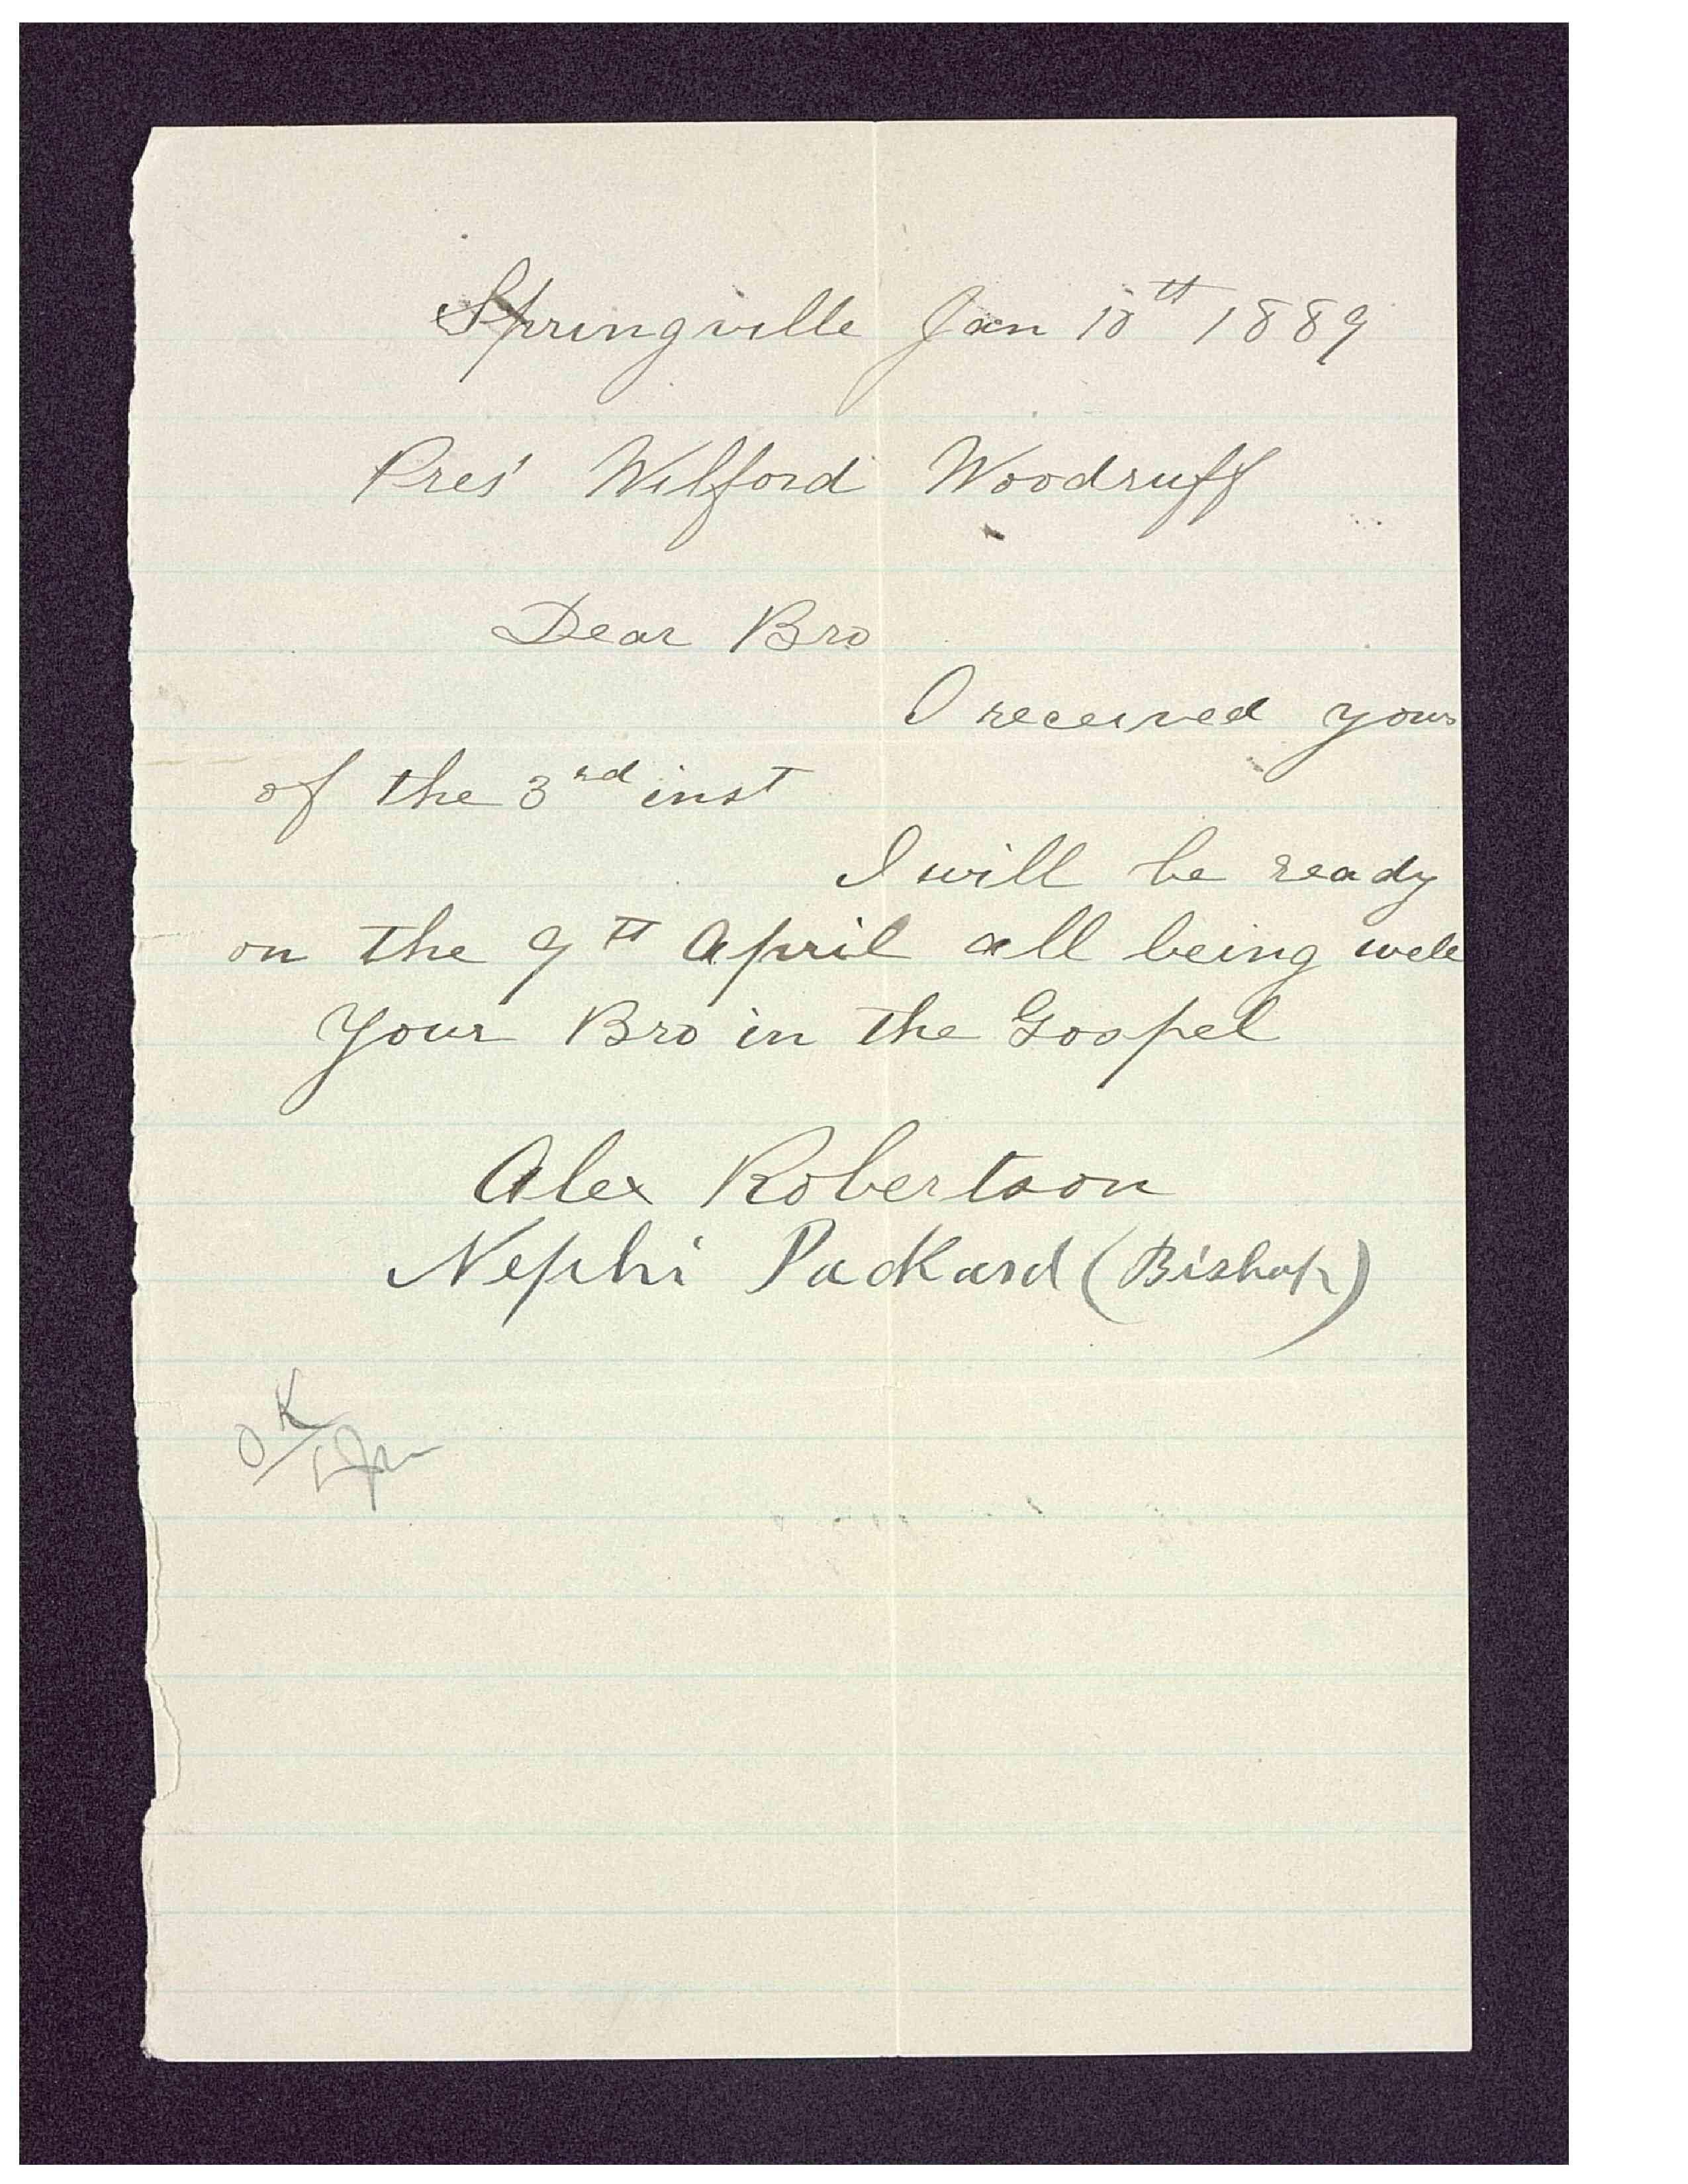 Springville Jan 10th 1889
Pres' Wilford Woodruff
Dear Bro
I received yours
of the 3rd inst
I will be ready
on the 9th April all being well
Your Bro in the Gospel
Alex Robertson
Nephi Packard (Bishop)
OK